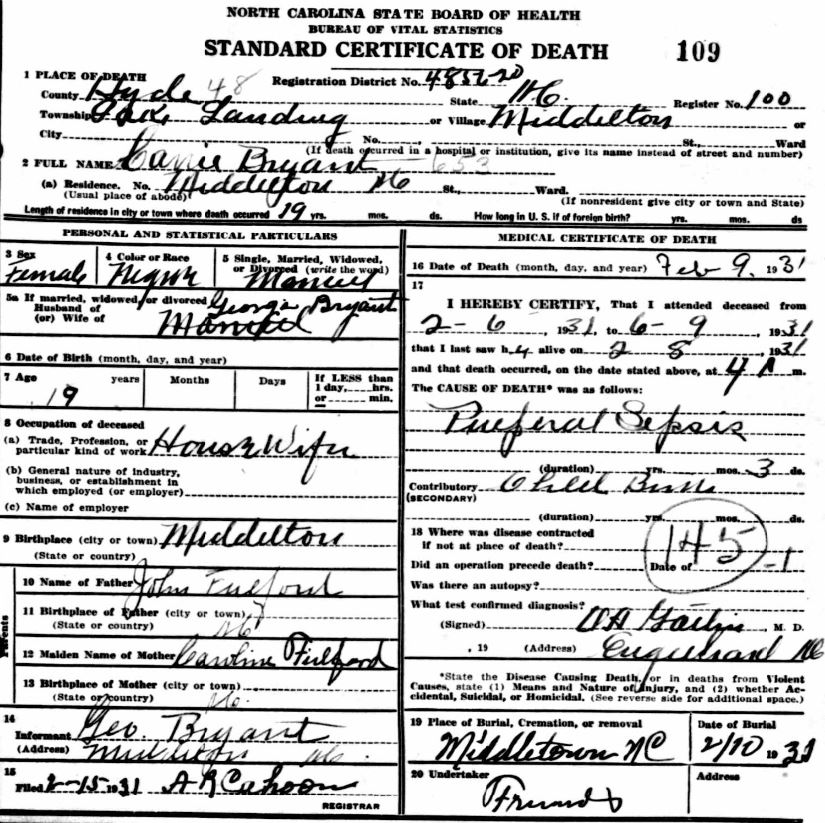 NORTH CAROLINA STATE BOARD OF HEALTH
BUREAU OF VITAL STATISTICS
STANDARD CERTIFICATE OF DEATH 109
1 PLACE OF DEATH
Registration District No. 48
County Hyde 48 State NC Register No. 100
Township Landing or Village Middelton or
City No. St., Ward
(If death occurred in a hospital or institution, give its name instead of street and number)
2 FULL NAME Carrie Bryant 653
(a) Residence. No. Middelton NC St., Ward.
(Usual place of abode) (If nonresident give city or town and State)
Length of residence in city or town where death occurred 19 yrs. mos. ds. How long in U. S. if of foreign birth? yrs. mos. ds
PERSONAL AND STATISTICAL PARTICULARS
3 Sex
Female
4 Color or Race
Negro
5 Single, Married, Widowed,
or Divorced (write the word)
5a If married, widowed, or divorced George Bryant
Husband of
(or) Wife of
6 Date of Birth (month, day, and year)
7 Age years Months Days If LESS than
1 day, hrs.
or min.
19
8 Occupation of deceased
(a) Trade, Profession, or
particular kind of work House Wife
(b) General nature of industry,
business, or establishment in
which employed (or employer)
(c) Name of employer
9 Birthplace (city or town) Middelton
(State or country)
Parents
10 Name of Father John Fulford
11 Birthplace of Father (city or town)
(State or country) NC
12 Maiden Name of Mother Caroline Fulford
13 Birthplace of Mother (city or town)
(State or country) NC
14
Informant Geo. Bryant
(Address) NC
15
Filed 2-15 1931 A R Cahoon
REGISTRAR
MEDICAL CERTIFICATE OF DEATH
16 Date of Death (month, day, and year) Feb 9, 1931
17
I HEREBY CERTIFY, That I attended deceased from
2-6, 1931, to 6-9, 1931
that I last saw h alive on 2 8, 1931
and that death occurred, on the date stated above, at 4 A m.
The CAUSE OF DEATH* was as follows:
Puerperal Sepsis
(duration) yrs. mos. 3 ds.
Contributory Child Birth
(SECONDARY)
(duration) yrs. mos. ds.
18 Where was disease contracted
if not at place of death? 145
Did an operation precede death? Date of -1
Was there an autopsy?
What test confirmed diagnosis?
(Signed) M. D.
, 19 (Address) NC
*State the Disease Causing Death, or in deaths from Violent
Causes, state (1) Means and Nature of Injury, and (2) whether Ac-
cidental, Suicidal, or Homicidal. (See reverse side for additional space.)
19 Place of Burial, Cremation, or removal
Middletown NC
Date of Burial
2/10 1931
20 Undertaker
Friends
Address